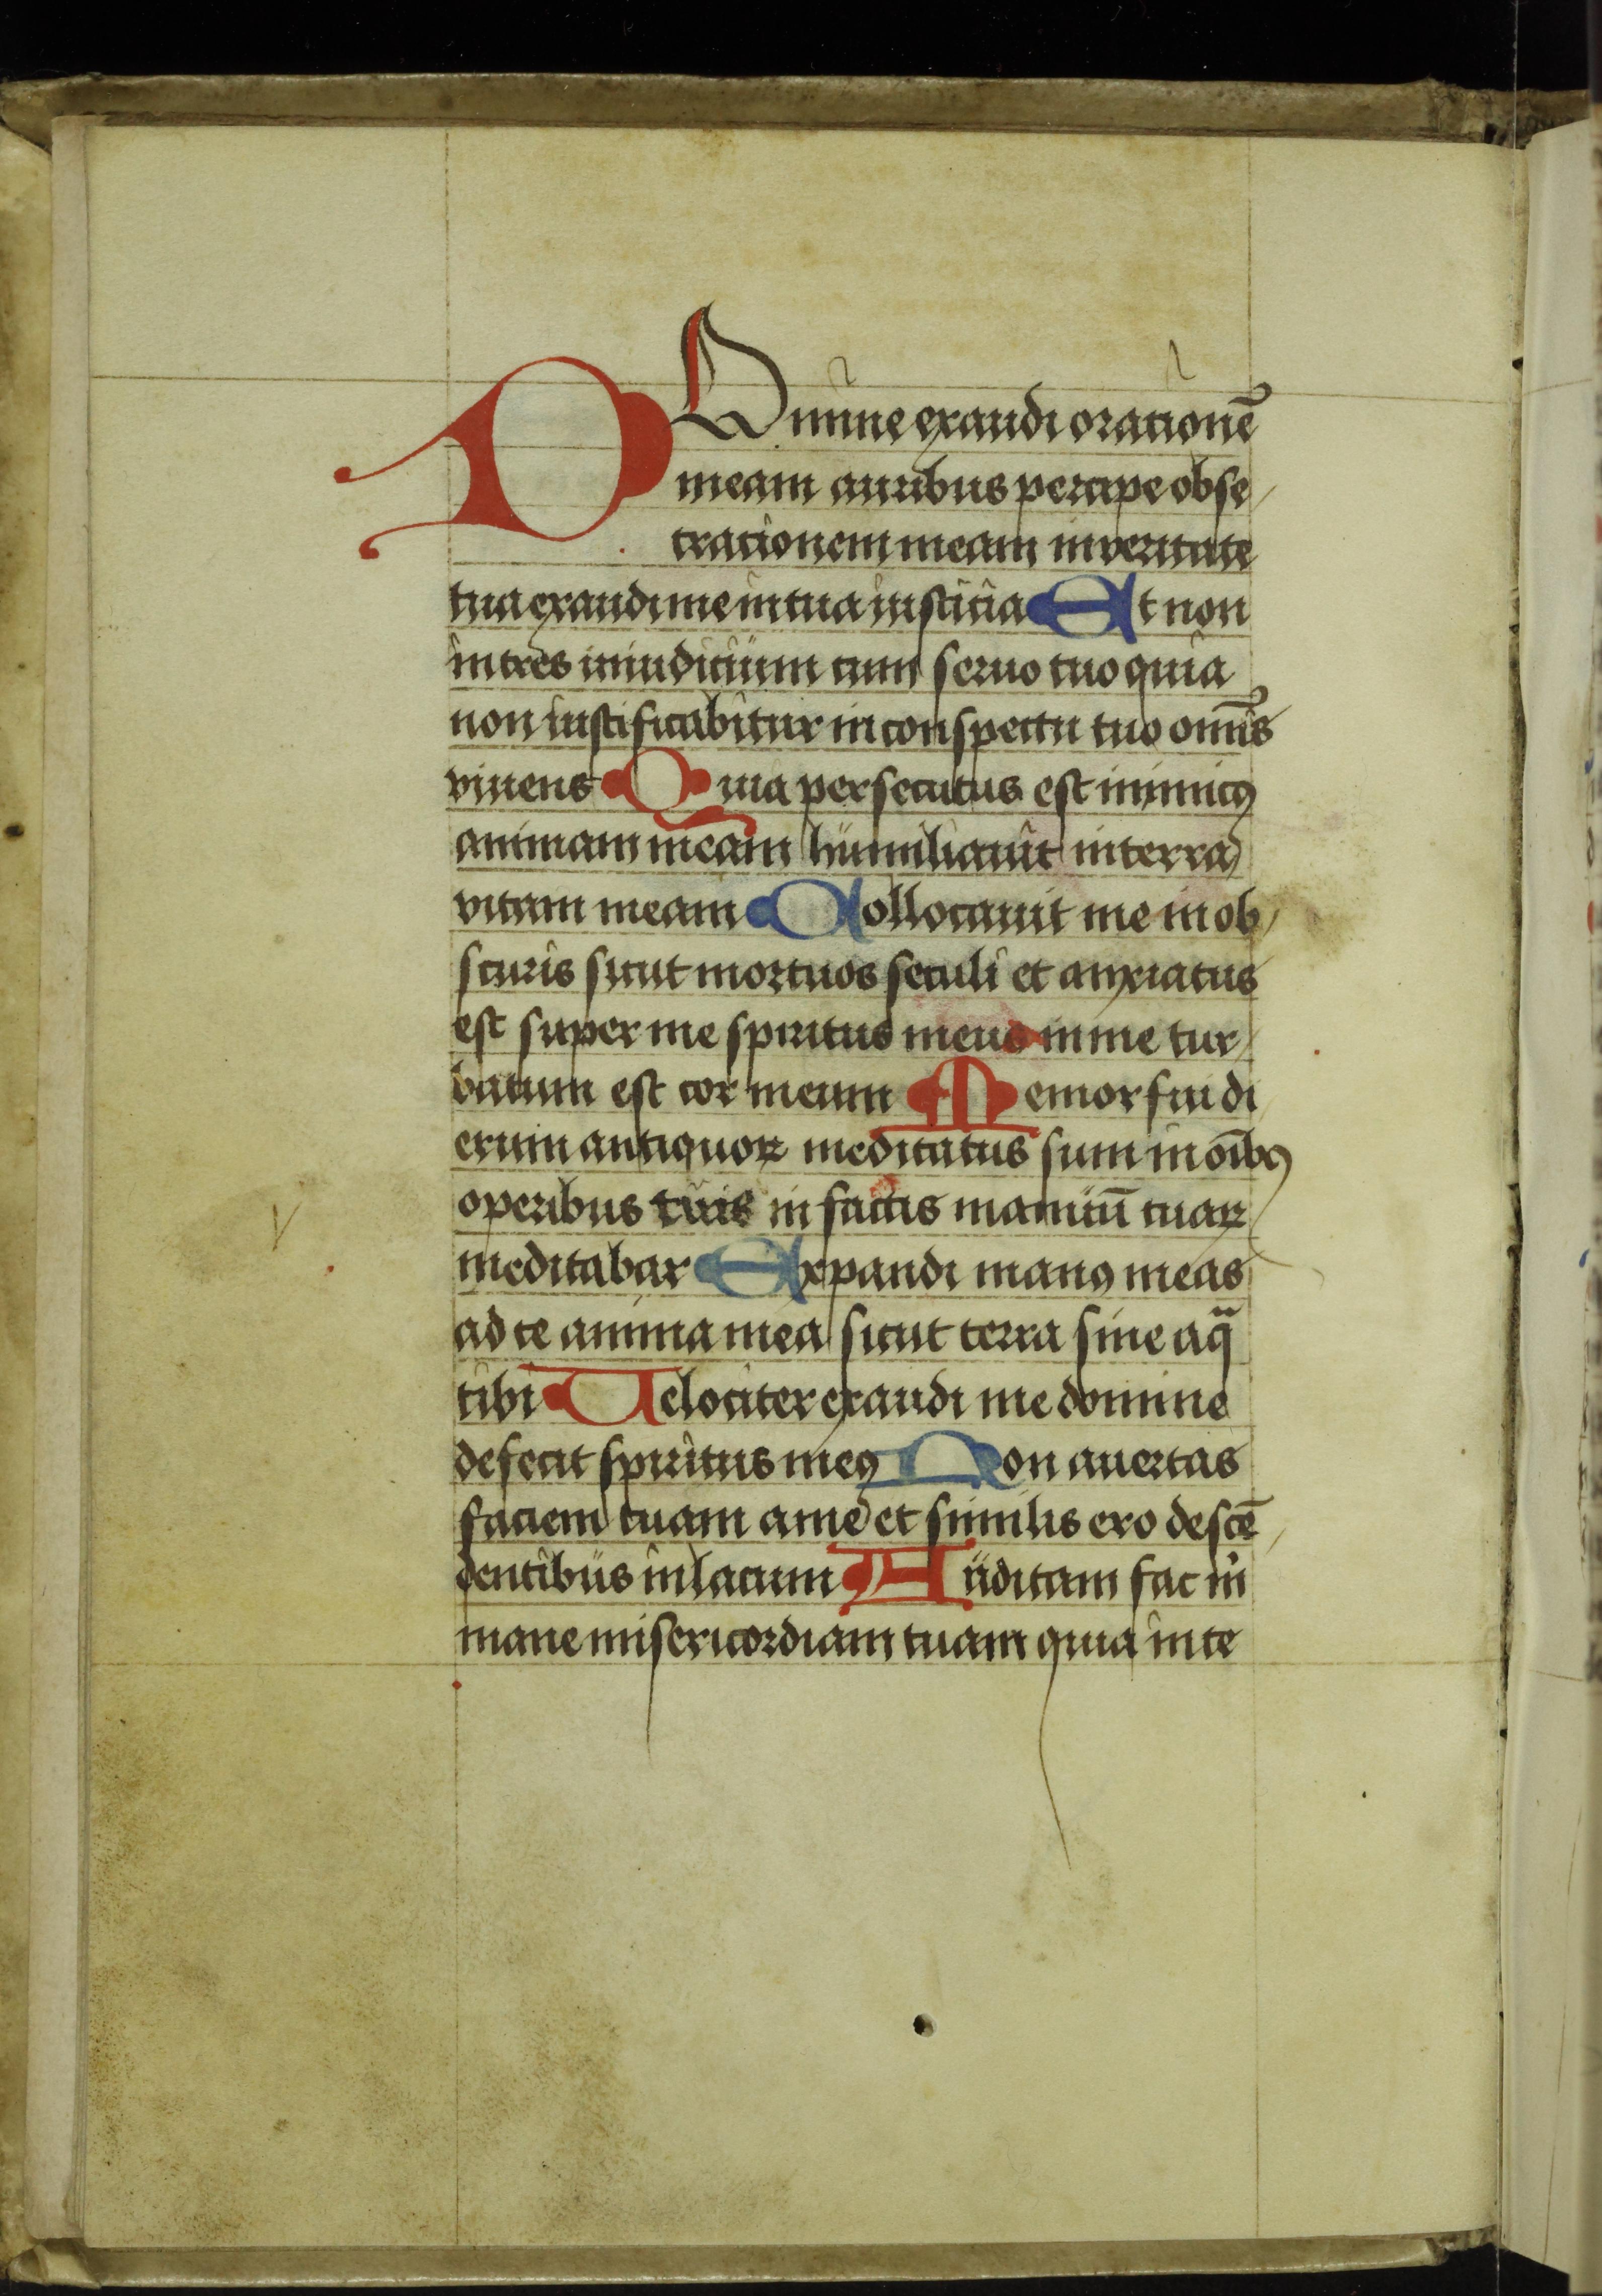 DOmine exaudi orationē
meam auribus percipe obse
crationem meam in veritate
tua exaudi me in tua iusticia Et non
intres in iudicium cum seruo tuo quia
non iustificabitur in conspectu tuo omīs
viuens Quia persecutus est inimicꝰ
animam meam humiliauit in terra
vitam meam Collocauit me in ob
scuris sicut mortuos seculi et anxiatus
est super me spiritus meus in me tur
batum est cor meum Memor fui di
erum antiquoꝝ meditatus sum in oībꝰ
operibus tuis in factis manuū tuaꝝ
meditabar Expandi manꝰ meas
ad te anima mea sicut terra sine aq̄
tibi Velociter exaudi me domine
defecit spiritus meꝰ Non auertas
faciem tuam a me et similis ero descē
dentibus in lacum Auditam fac m̄
mane misericordiam tuam quia in te